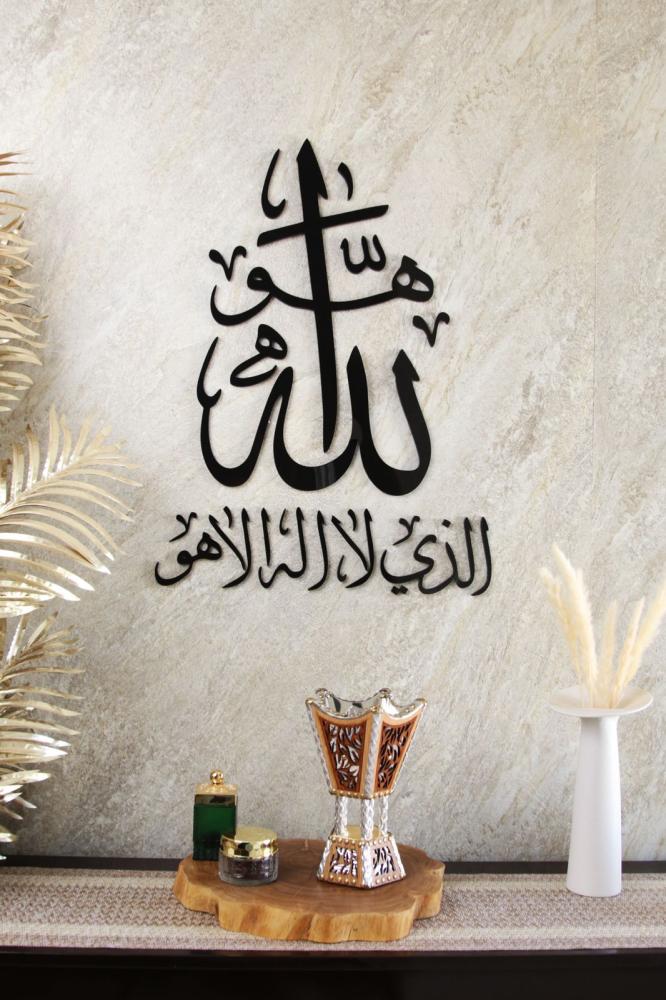 هو الله
الذي لا اله الا هو